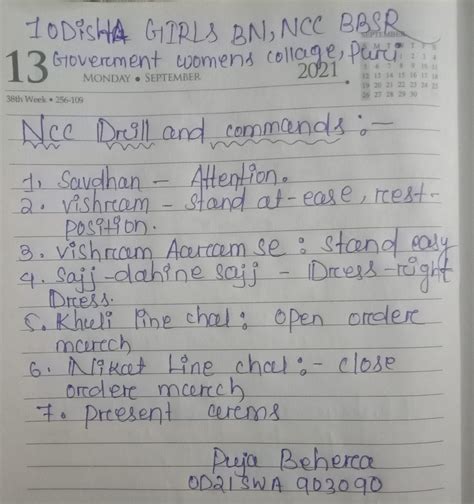 1 ODISHA GIRLS BN, NCC BBSR
Goverment womens collage, Puri
13 MONDAY • SEPTEMBER 2021
38th Week • 256-109
Ncc Drill and commands :-
1. Savdhan - Attention.
2. vishram - Stand at-ease, rest-
position.
3. vishram Aaram se : Stand easy
4. Sajj-dahine sajj - Dress-right
Dress.
5. Khuli line chal : open order
march
6. Nikat Line chal :- close
order march
7. present arems
Puja Behera
OD21SWA 903090